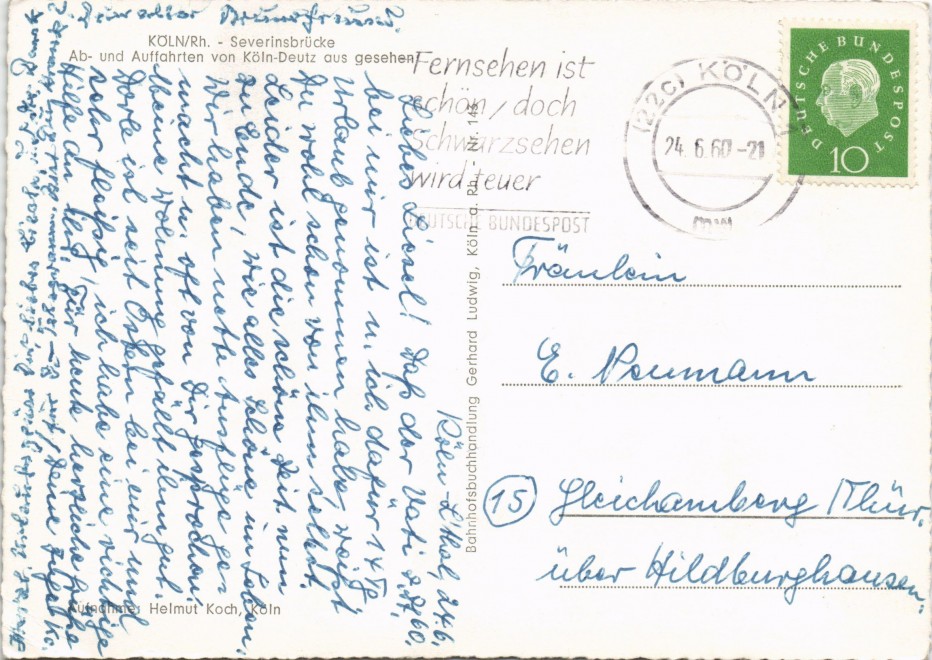 KÖLN/Rh. - Severinsbrücke
Ab- und Auffahrten von Köln-Deutz aus gesehen
Fernsehen ist
schön, doch
Schwarzsehen
wird teuer
DEUTSCHE BUNDESPOST
(22c) KÖLN
24.6.60-21
mw
DEUTSCHE BUNDESPOST
10
Köln-Thal, 24.6.60.
Liebes Liesel! Daß der Vati z. Zt.
bei mir ist u. ich dafür 14 Tg
Urlaub genommen habe, weißt
Du wohl schon von ihm selbst.
Leider ist die schöne Zeit nun
zu Ende, wie alles Schöne im Leben.
Wir haben nette Ausflüge ge-
macht u. oft von Dir gesprochen.
Meine Wohnung gefällt ihm gut.
Dorle ist seit Ostern bei mir und
sehr fleißig, ich habe eine richtige
Hilfe an ihr. Für heute herzliche Grüße
Deine
Bahnhofsbuchhandlung Gerhard Ludwig, Köln a. Rh. Nr. 143
Fräulein
E. Neumann
(15) Gleichamberg /Thür.
über Hildburghausen.
Aufnahme: Helmut Koch, Köln